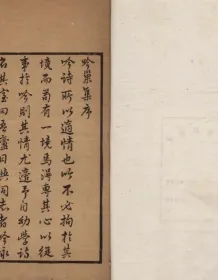 吟巢集序
吟詩所以適情也然不必拘於其
境而苟有一境焉得專其心以從
事於吟則其情尤遣予自幼學詩
名其室曰吾廬日與同志者吟咏